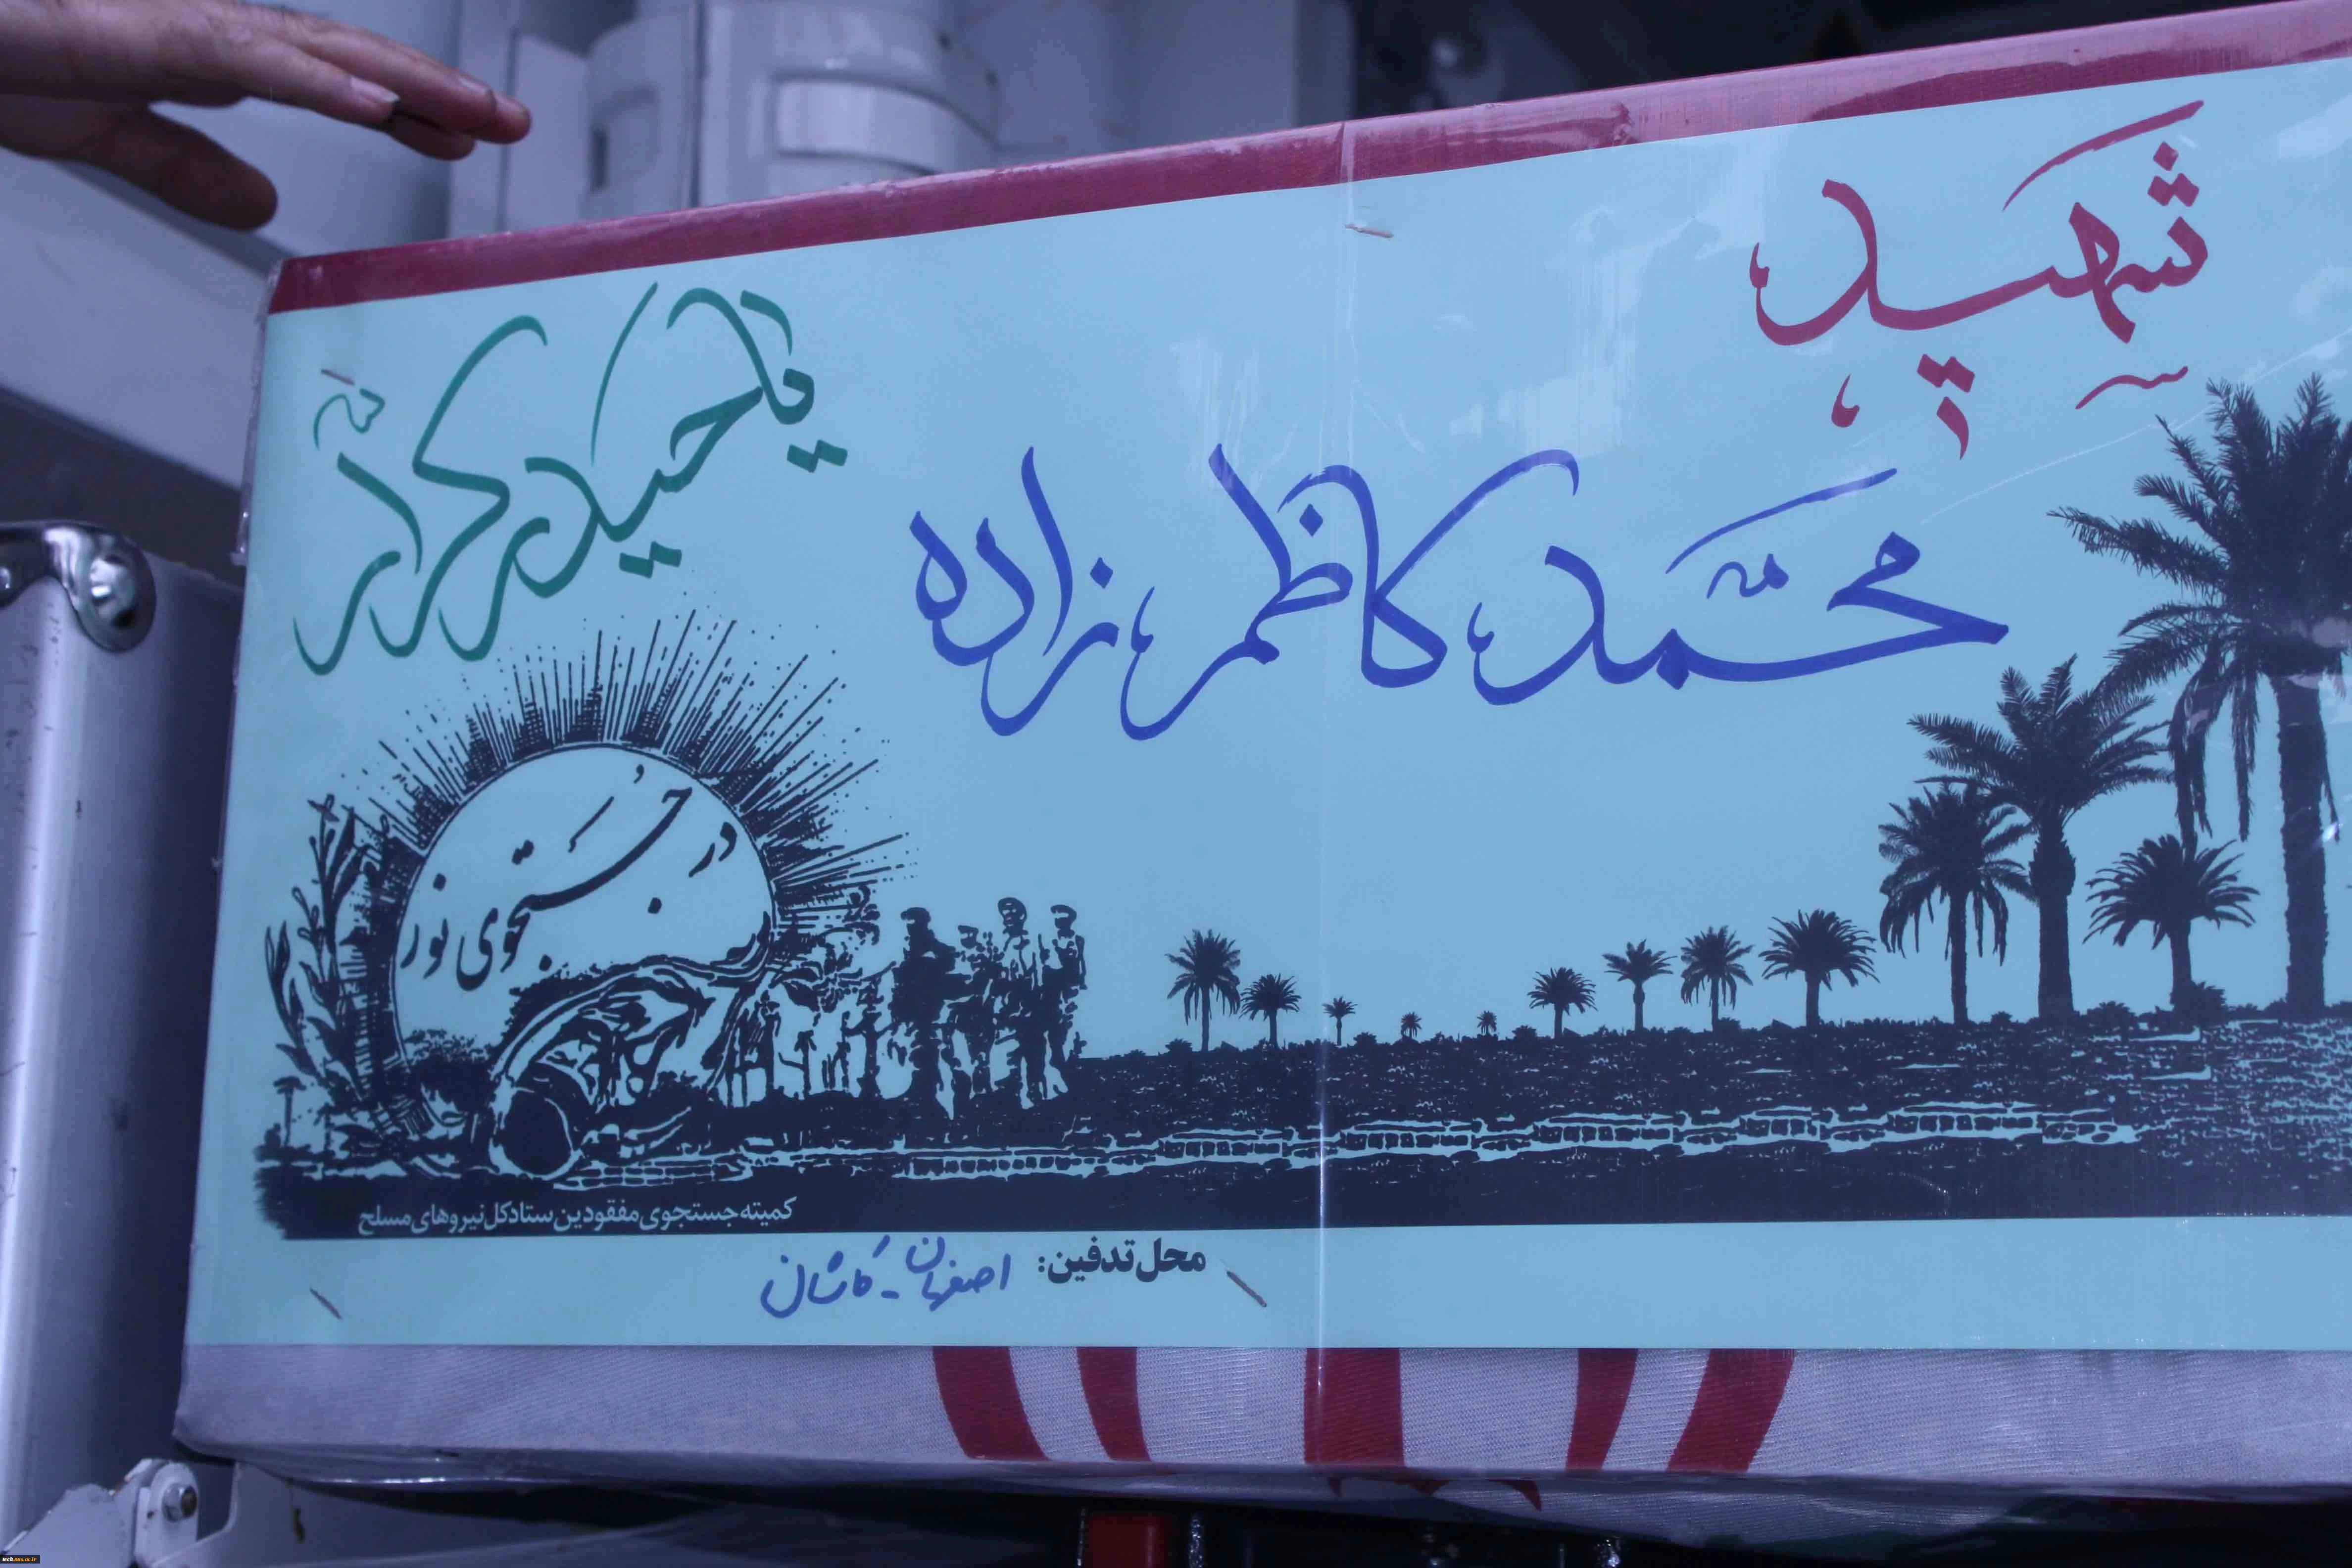 شهید
یا حیدر کرار
محمّد کاظم زاده
در جُستجوی نور
کمیته جستجوی مفقودین ستاد کل نیروهای مسلح
محل تدفین: اصفهان - کاشان